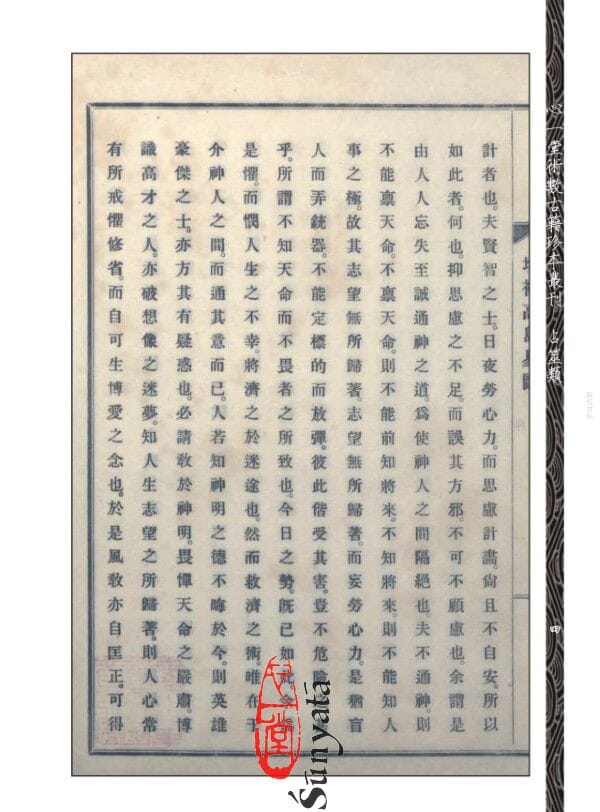 心一堂術數古籍珍本叢刊　占筮類
四
計者也。夫賢智之士。日夜勞心力。而思慮計畫。尙且不自安。所以
如此者。何也。抑思慮之不足。而誤其方邪。不可不顧慮也。余謂是
由人人忘失至誠通神之道。爲使神人之間隔絕也。夫不通神。則
不能禀天命。不禀天命。則不能前知將來。不知將來。則不能知人
事之極。故其志望無所歸著。志望無所歸著。而妄勞心力。是猶盲
人而弄銃器。不能定標的而放彈。彼此偕受其害。豈不危險
乎。所謂不知天命而不畏者之所致也。今日之勢。旣已如
是懼。而憫人生之不幸。將濟之於迷途也。然而救濟之術。唯在于
介神人之間。而通其意而已。人若知神明之德不晦於今。則英雄
豪傑之士。亦方其有疑惑也。必請敎於神明。畏憚天命之嚴肅。博
識高才之人。亦破想像之迷夢。知人生志望之所歸著。則人心常
有所戒懼修省。而自可生博愛之念也。於是風敎亦自匡正。可得
心一堂
Śūnyatā